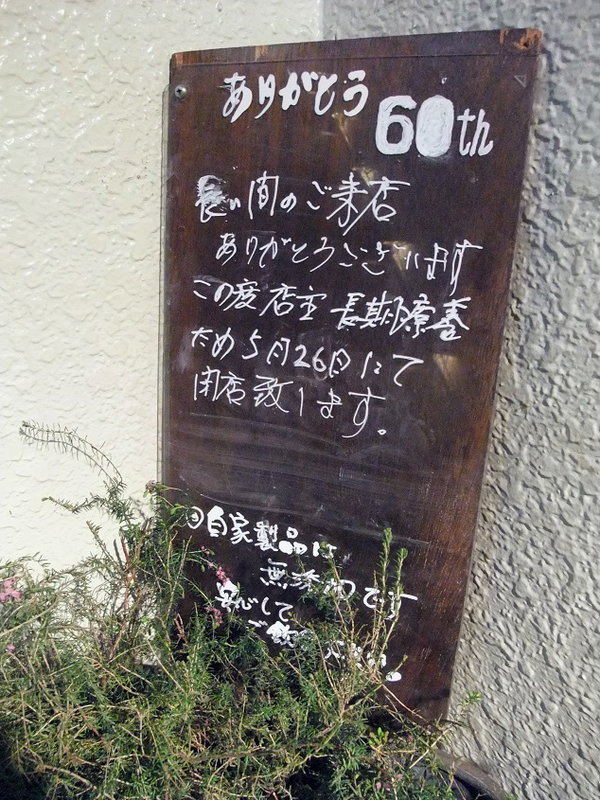 ありがとう
60th
長い間のご来店
ありがとうございます
この度店主長期療養
ため5月26日にて
閉店致します。
◎自家製品は
無添加です
安心して
ご飲